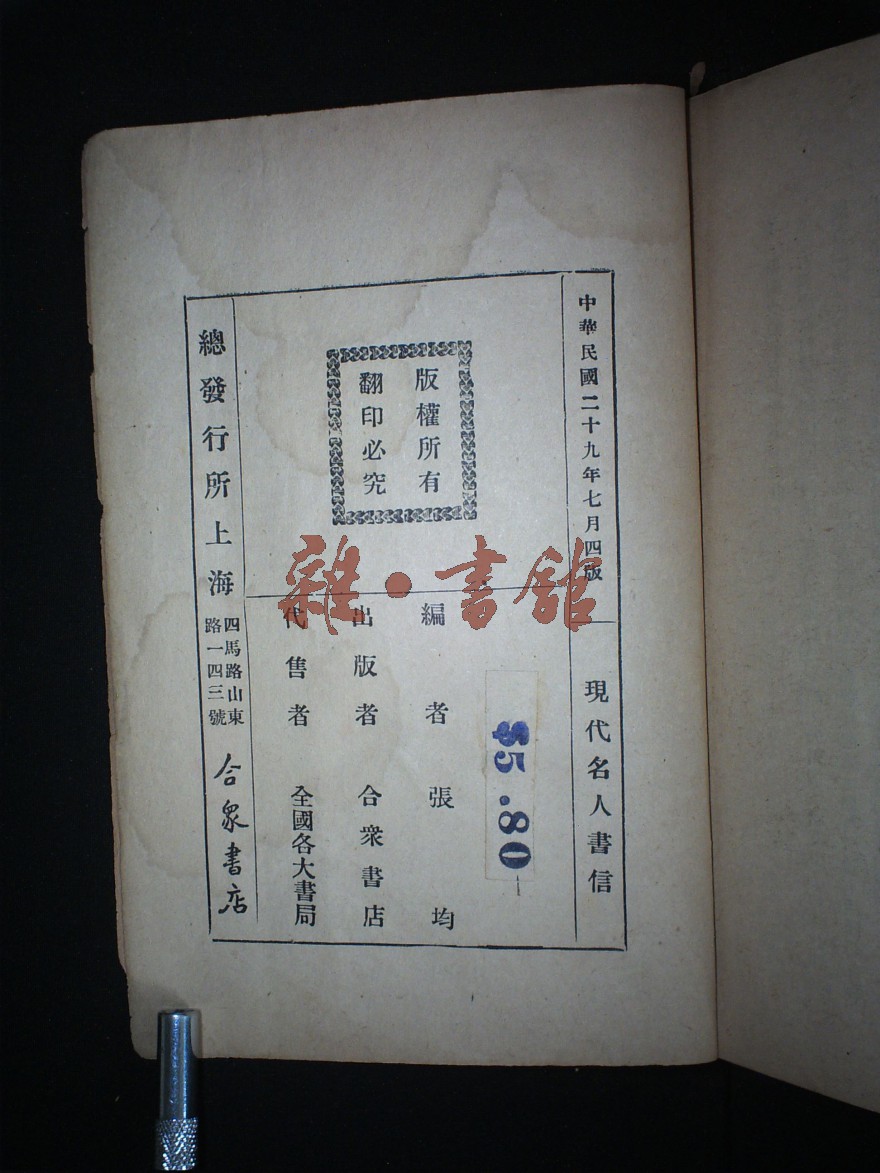 中華民國二十九年七月四版
現代名人書信
版權所有
翻印必究
$5.80
編者 張均
出版者 合衆書店
代售者 全國各大書局
總發行所上海
四馬路山東
路一四三號
合衆書店
雜·書館